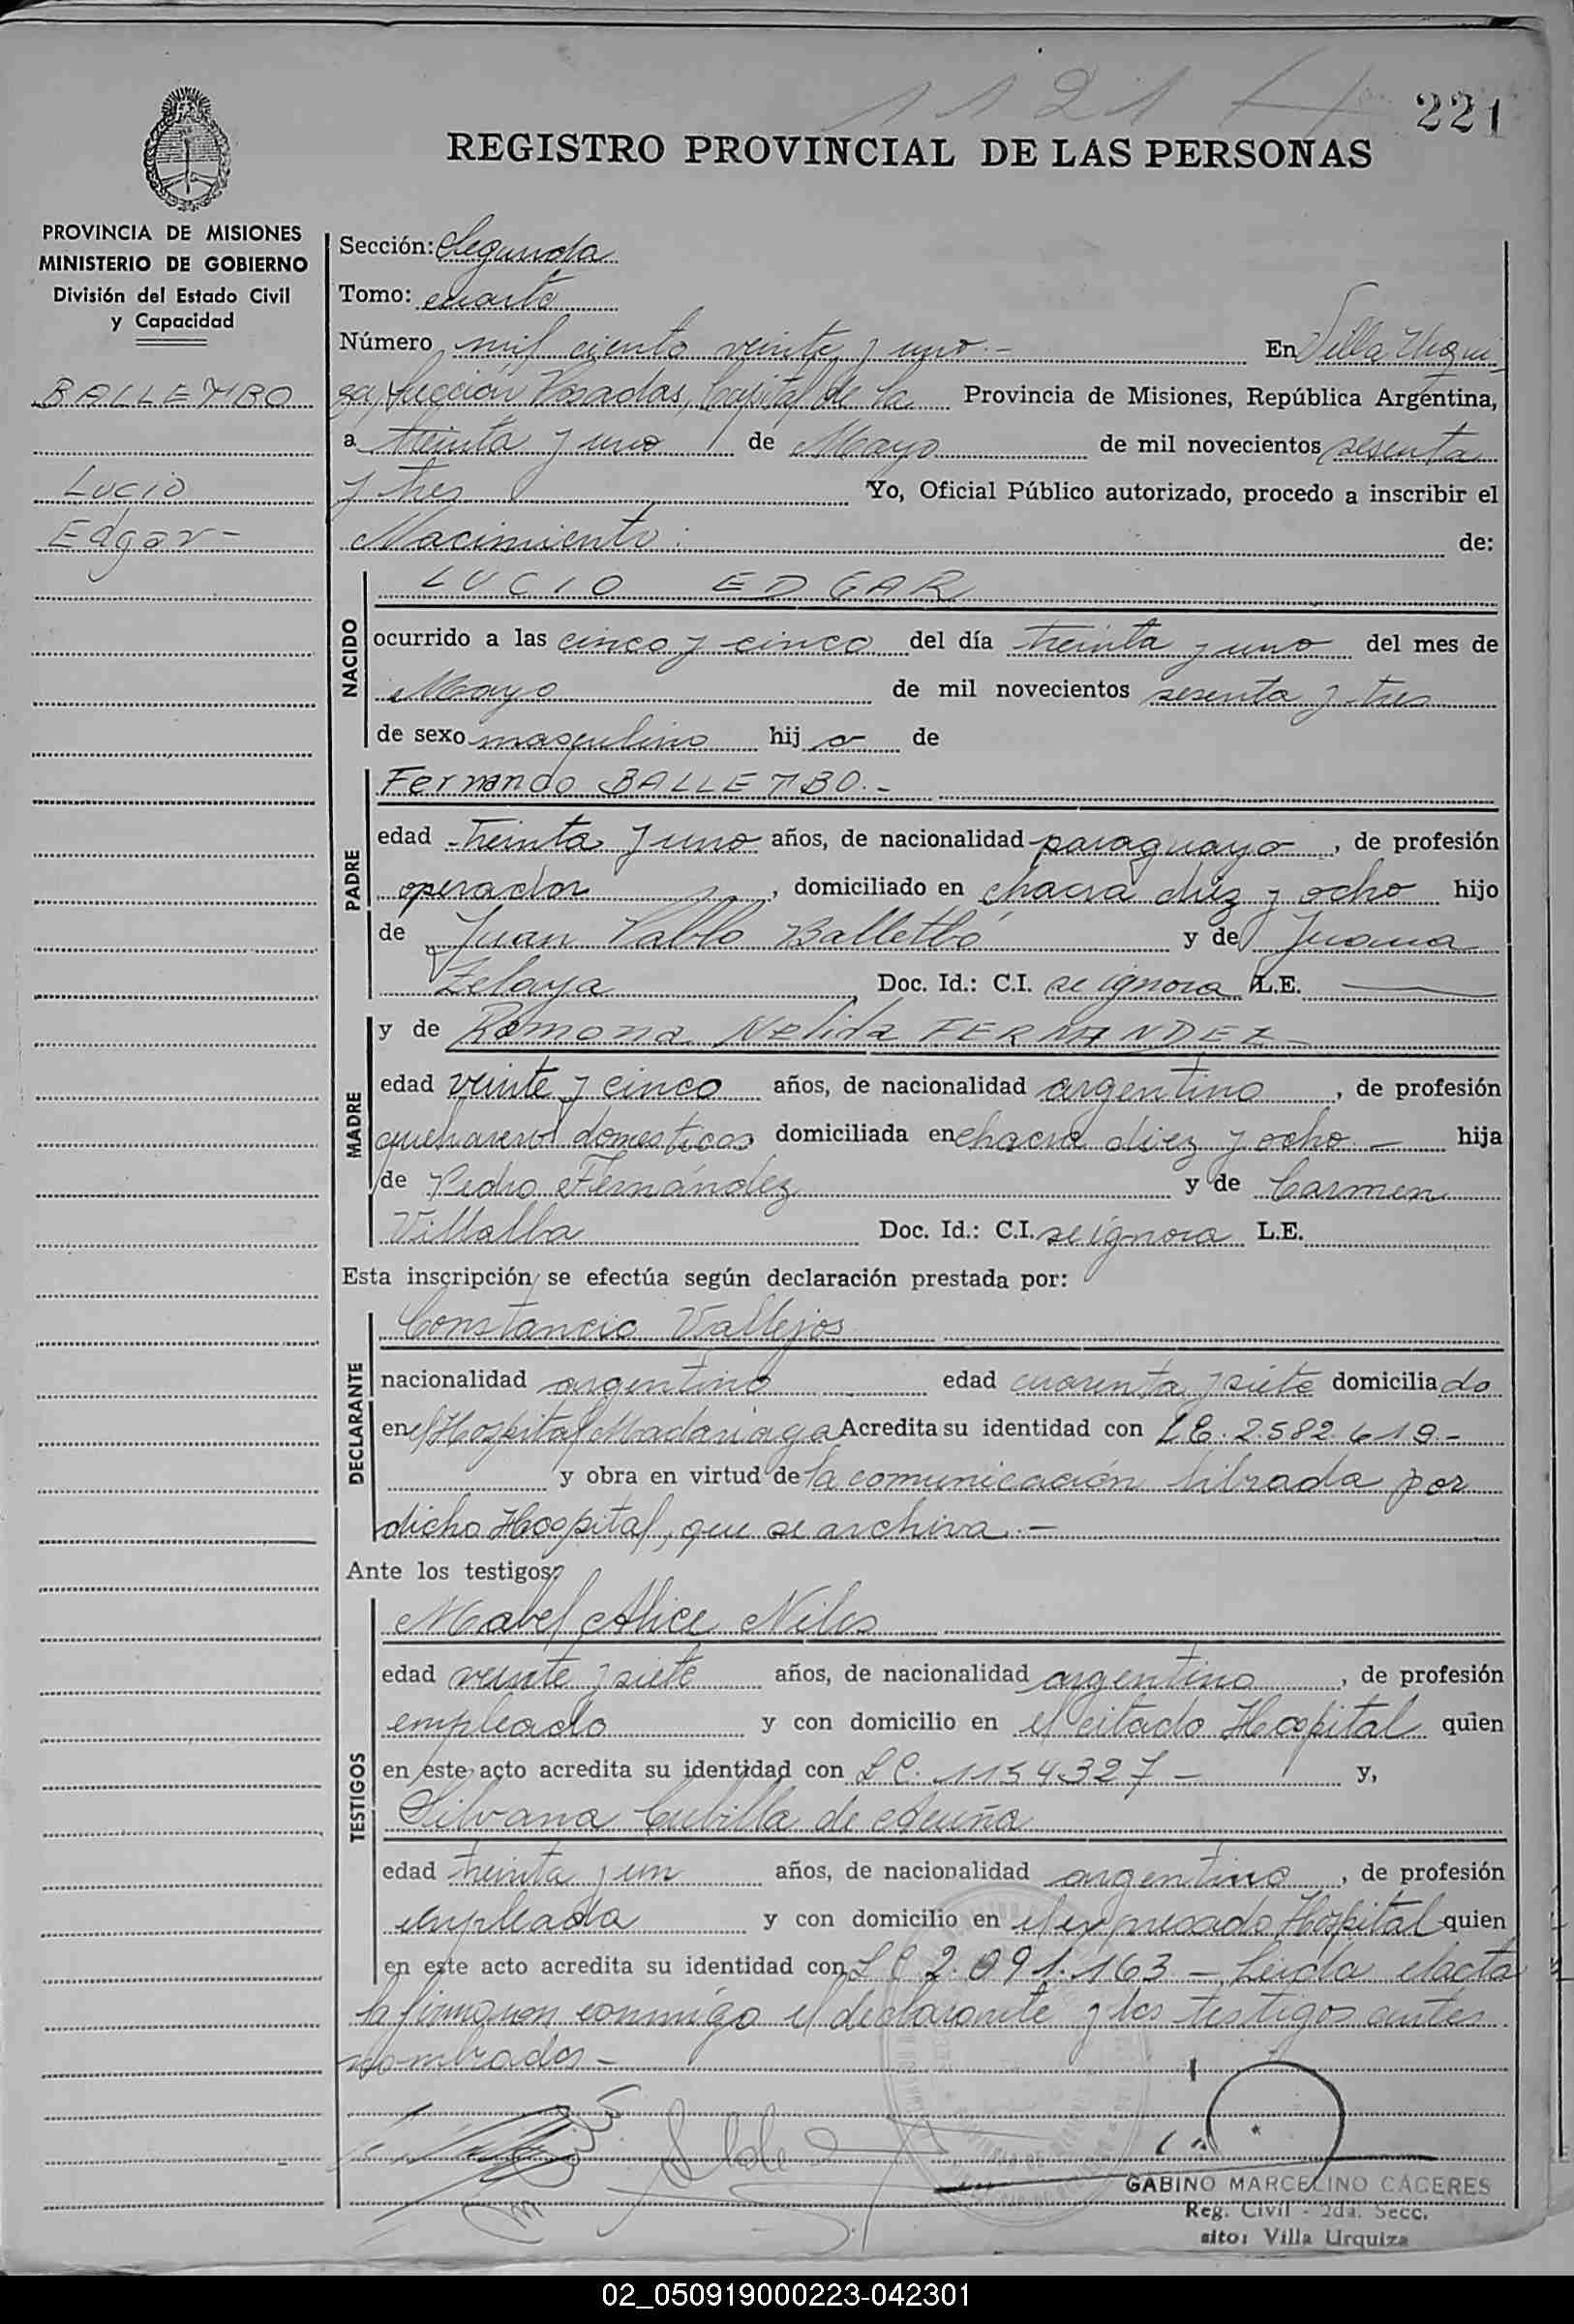 1121
221
REGISTRO PROVINCIAL DE LAS PERSONAS
PROVINCIA DE MISIONES
MINISTERIO DE GOBIERNO
División del Estado Civil
y Capacidad
BALLETBO
Lucio
Edgar -
Sección: Segunda
Tomo: cuarto
Número mil ciento veinte y uno.- En Villa Urqui
za, Sección Posadas, Capital de la Provincia de Misiones, República Argentina,
a treinta y uno de Mayo de mil novecientos sesenta
y tres Yo, Oficial Público autorizado, procedo a inscribir el
Nacimiento: de:
NACIDO
LUCIO EDGAR
ocurrido a las cinco y cinco del día treinta y uno del mes de
Mayo de mil novecientos sesenta y tres
de sexo masculino hij o de
PADRE
Fernando BALLETBO.-
edad treinta y uno años, de nacionalidad paraguayo, de profesión
operador, domiciliado en chacra diez y ocho hijo
de Juan Pablo Balletbó y de Juana
Zelaya Doc. Id.: C.I. se ignora L.E.
MADRE
y de Ramona Nelida FERNANDEZ
edad veinte y cinco años, de nacionalidad argentino, de profesión
quehaceres domesticos domiciliada en chacra diez y ocho - hija
de Pedro Fernández y de Carmen
Villalba Doc. Id.: C.I. se ignora L.E.
Esta inscripción se efectúa según declaración prestada por:
DECLARANTE
Constancio Vallejos
nacionalidad argentino edad cuarenta y siete domicilia do
en el Hospital Madariaga Acredita su identidad con L.E. 2.582.619.-
y obra en virtud de la comunicación librada por
dicho Hospital, que se archiva.-
Ante los testigos:
TESTIGOS
Mabel Alice Niles
edad veinte y siete años, de nacionalidad argentino, de profesión
empleado y con domicilio en el citado Hospital quien
en este acto acredita su identidad con L.C. 1154327 - y,
Silvana Cubilla de Acuña
edad treinta y un años, de nacionalidad argentino, de profesión
empleada y con domicilio en el expresado Hospital quien
en este acto acredita su identidad con L C 2.091.163 - Leida el acta
la firmaron conmigo el declarante y los testigos antes
nombrados -
GABINO MARCELINO CACERES
Reg. Civil - 2da. Secc.
sito: Villa Urquiza
02_050919000223-042301